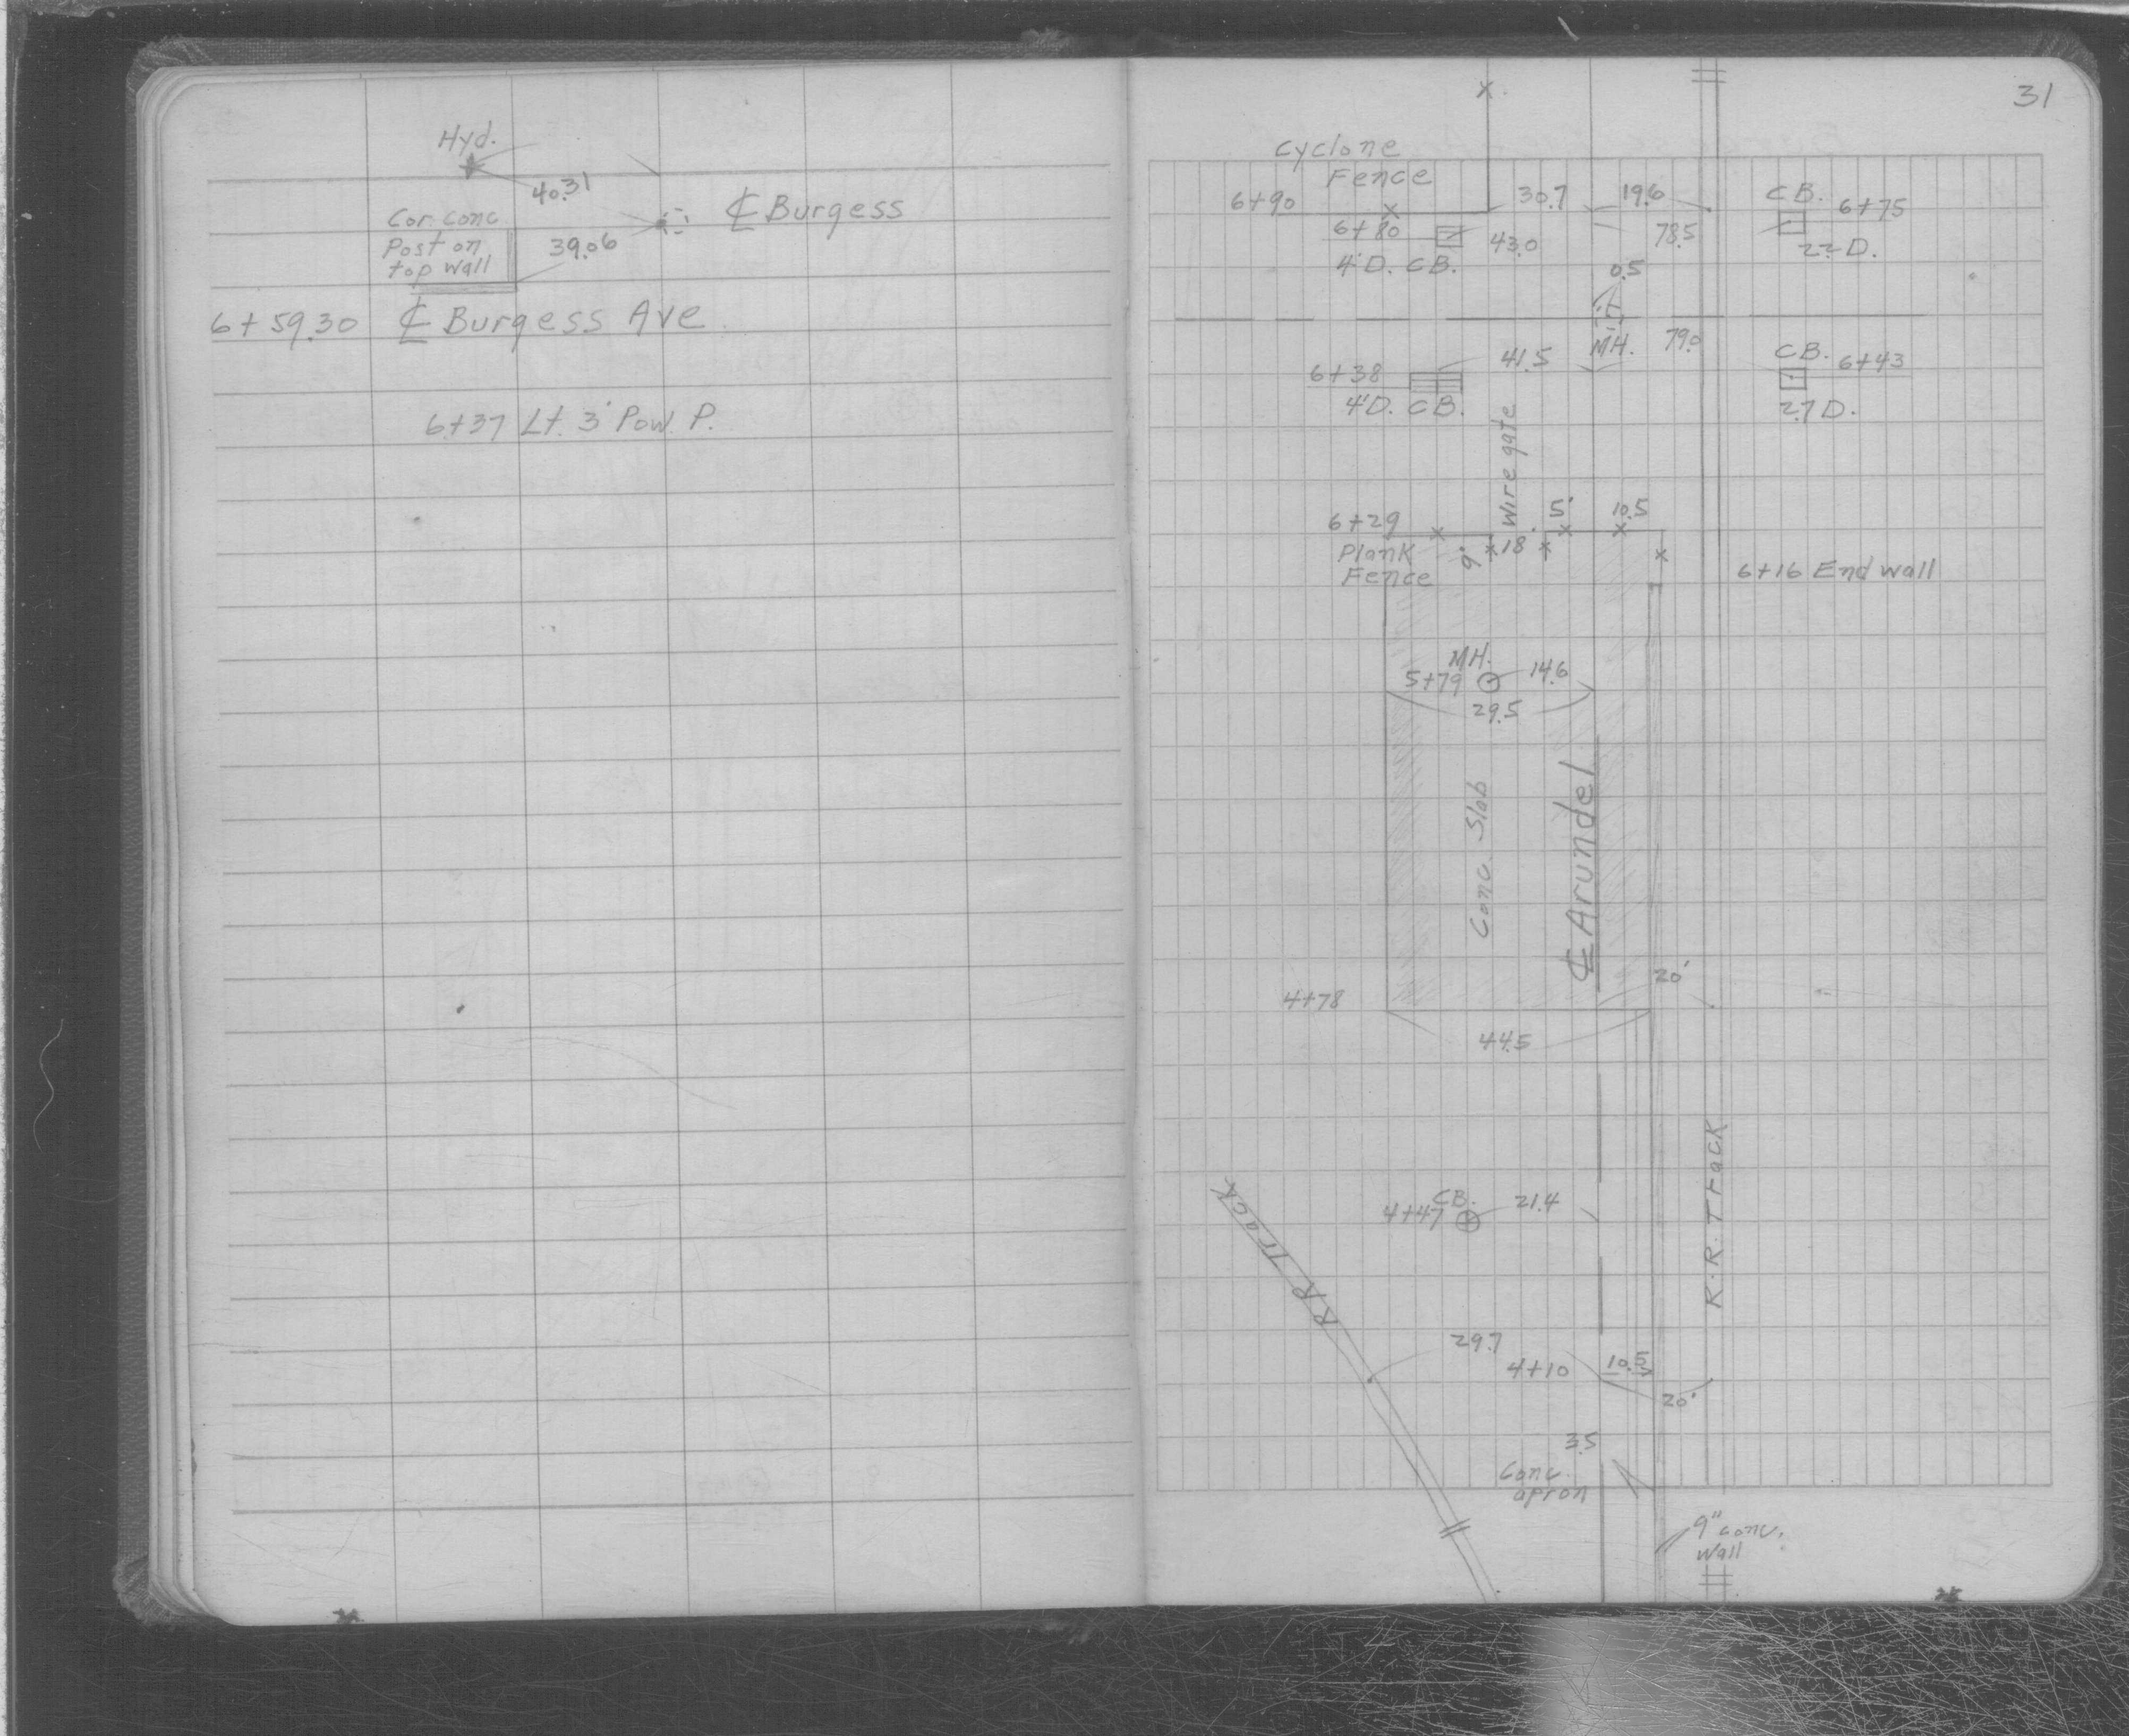 Hyd.
40.31
℄ Burgess
Cor. conc
Post on
top wall
39.06
6+59.30 ℄ Burgess Ave
6+37 Lt. 3' Pow. P.
31
Cyclone
Fence
6+90 30.7 19.6 C.B. 6+75
6+80 43.0 78.5
4'D. CB. 2.2 D.
0.5
MH. 79.0
6+38 41.5 C.B. 6+43
4'D. CB. 2.7 D.
Wire gate
6+29 5' 10.5
Plank 9' 18
Fence
6+16 End wall
MH.
5+79 14.6
29.5
Conc. Slab
℄ Arundel
20'
4+78
44.5
R.R. Track
CB.
4+47 21.4
RR Track
29.7
4+10 10.5
20'
3.5
Conc.
apron
9" conc.
wall